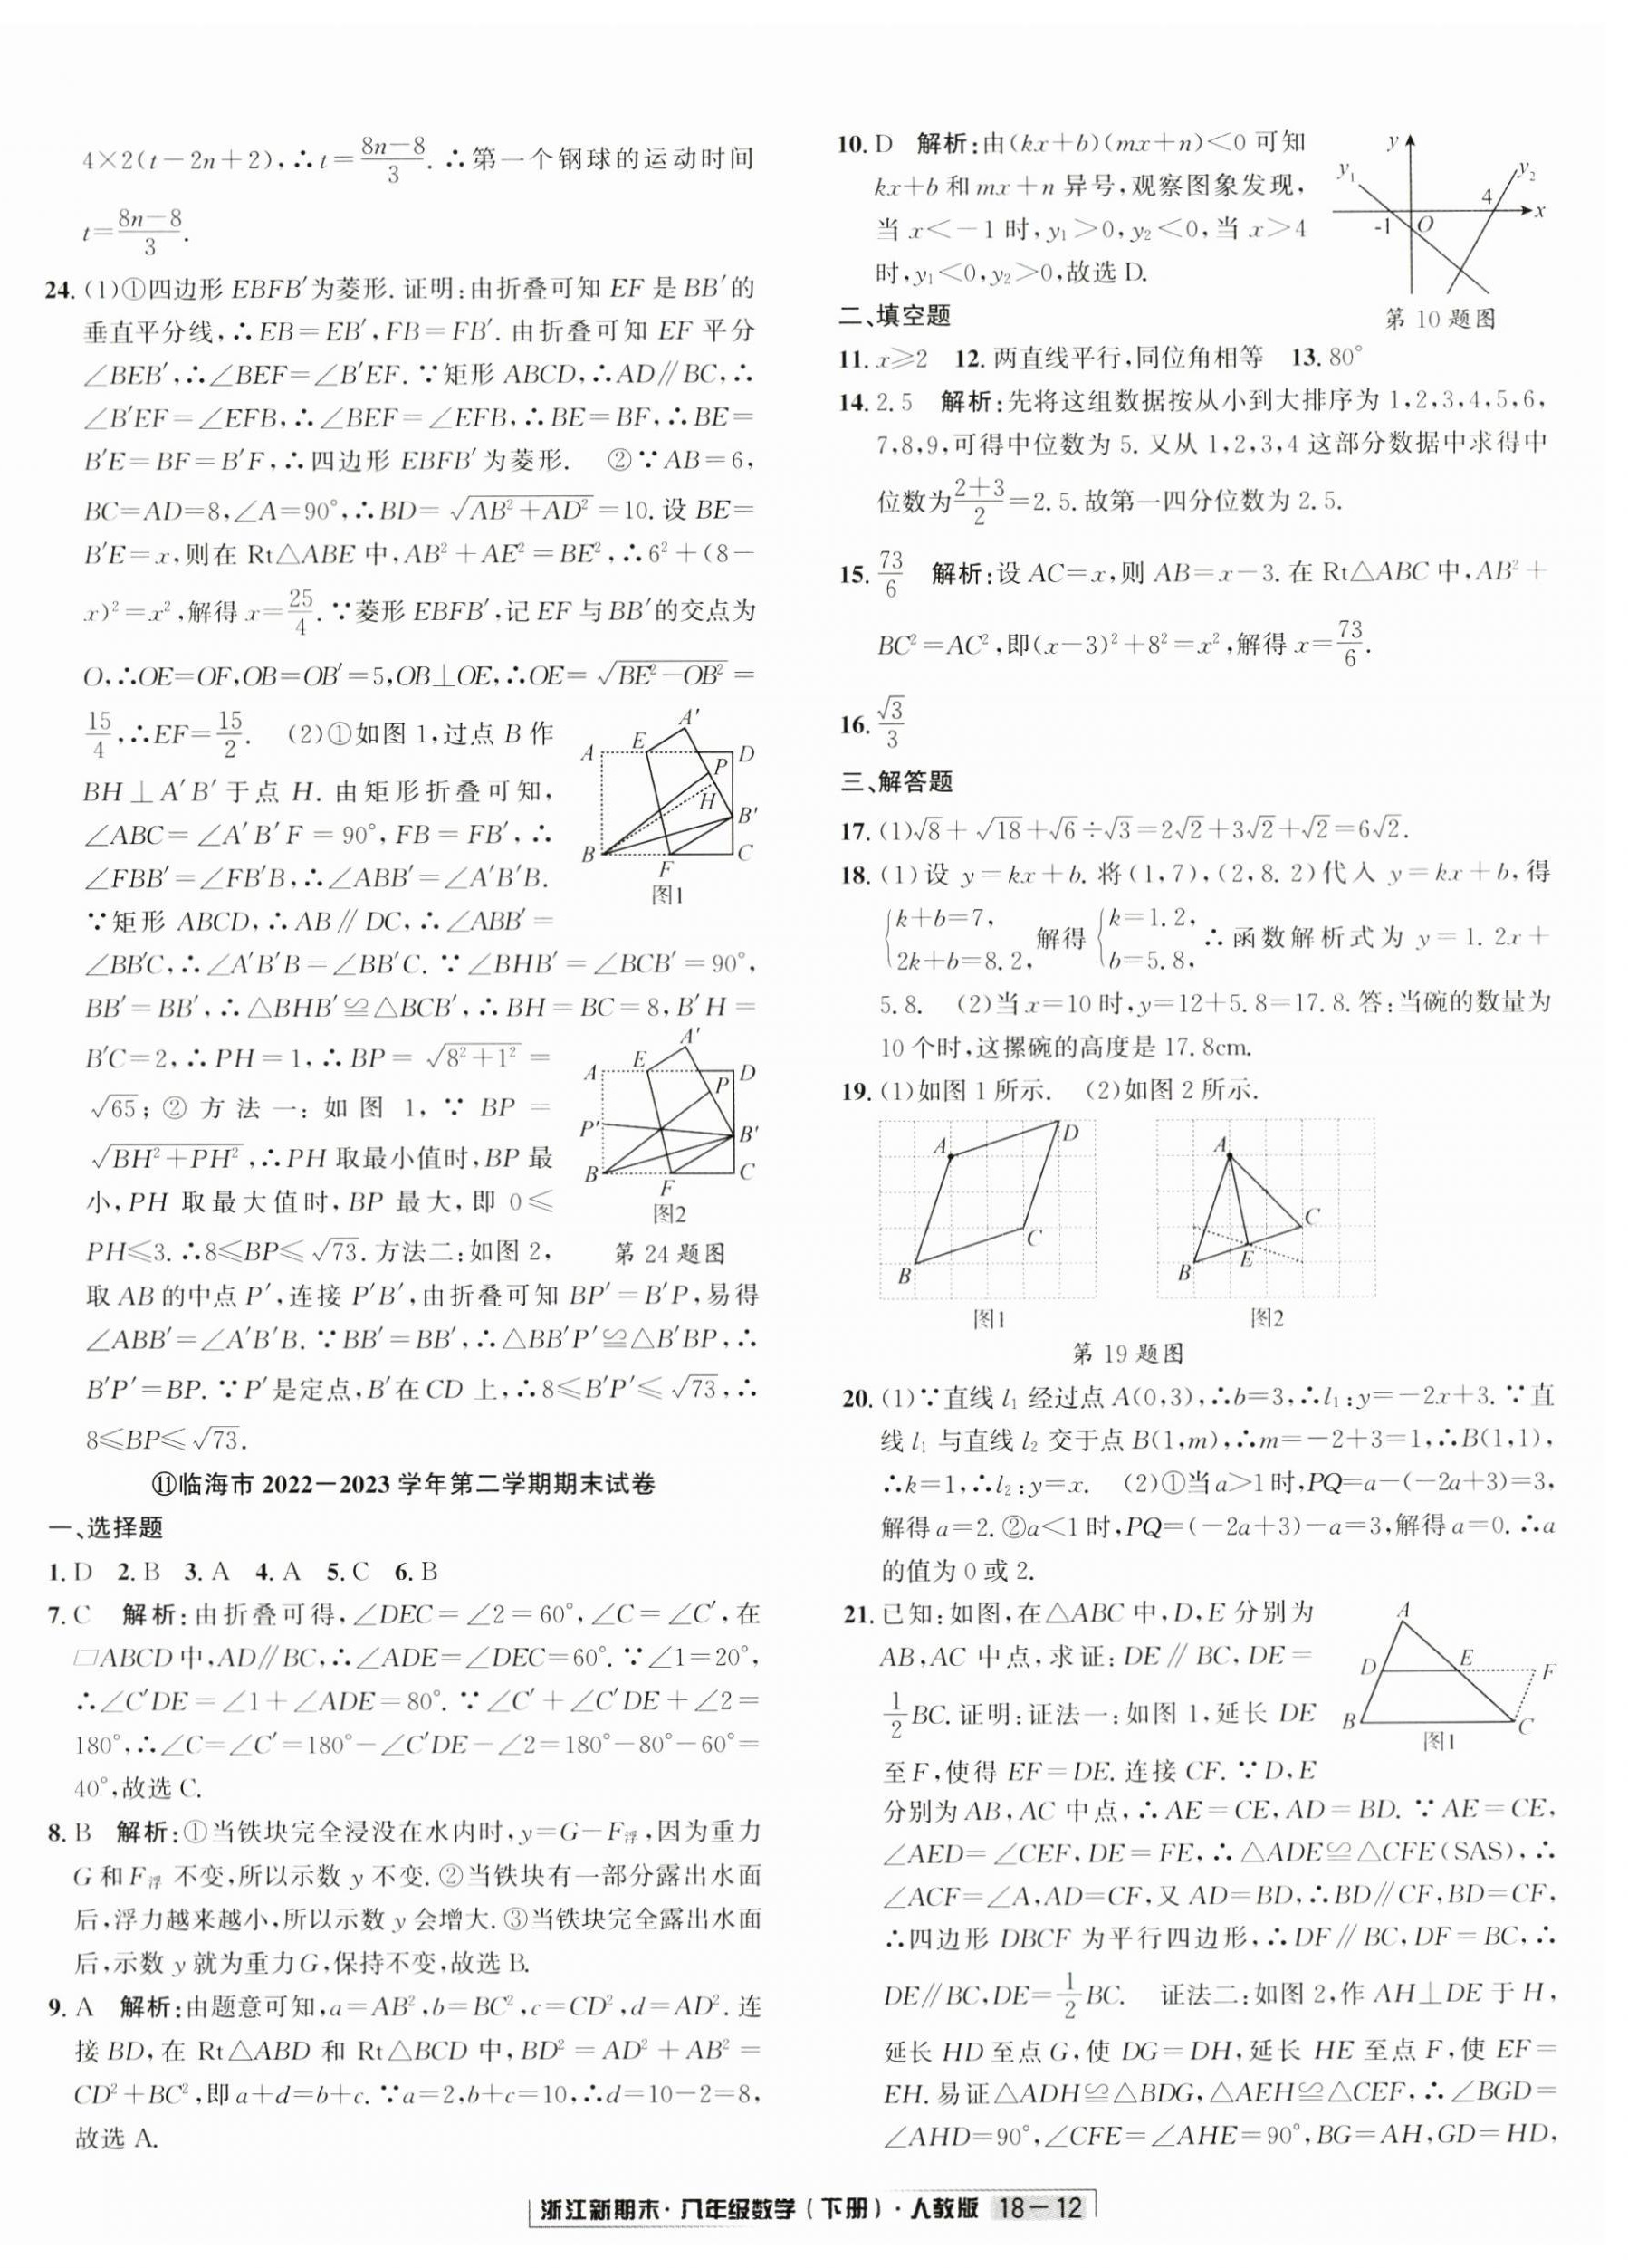 4×2(t-2n+2),∴t=\frac{8n-8}{3}.∴第一个钢球的运动时间
t=\frac{8n-8}{3}.
24.(1)①四边形EBFB′为菱形.证明:由折叠可知EF是BB′的
垂直平分线,∴EB=EB′,FB=FB′.由折叠可知EF平分
∠BEB′,∴∠BEF=∠B′EF.∵矩形ABCD,∴AD∥BC,∴
∠B′EF=∠EFB,∴∠BEF=∠EFB,∴BE=BF,∴BE=
B′E=BF=B′F,∴四边形EBFB′为菱形. ②∵AB=6,
BC=AD=8,∠A=90°,∴BD=√(AB²+AD²)=10.设BE=
B′E=x,则在Rt△ABE中,AB²+AE²=BE²,∴6²+(8-
x)²=x²,解得x=\frac{25}{4}.∵菱形EBFB′,记EF与BB′的交点为
O,∴OE=OF,OB=OB′=5,OB⊥OE,∴OE=√(BE²-OB²)=
\frac{15}{4},∴EF=\frac{15}{2}. (2)①如图1,过点B作
BH⊥A′B′于点H.由矩形折叠可知,
∠ABC=∠A′B′F=90°,FB=FB′,∴
∠FBB′=∠FB′B,∴∠ABB′=∠A′B′B.
∵矩形ABCD,∴AB∥DC,∴∠ABB′=
∠BB′C,∴∠A′B′B=∠BB′C.∵∠BHB′=∠BCB′=90°,
BB′=BB′,∴△BHB′≌△BCB′,∴BH=BC=8,B′H=
B′C=2,∴PH=1,∴BP=√(8²+1²)=
√65;②方法一:如图1,∵BP=
√(BH²+PH²),∴PH取最小值时,BP最
小,PH取最大值时,BP最大,即0≤
PH≤3.∴8≤BP≤√73.方法二:如图2,
取AB的中点P′,连接P′B′,由折叠可知BP′=B′P,易得
∠ABB′=∠A′B′B.∵BB′=BB′,∴△BB′P′≌△B′BP,∴
B′P′=BP.∵P′是定点,B′在CD上,∴8≤B′P′≤√73,∴
8≤BP≤√73.
A′
A E D
P
H
B′
B F C
图1
A′
A E D
P
P′
B′
B F C
图2
第24题图
⑪临海市2022-2023学年第二学期期末试卷
一、选择题
1.D 2.B 3.A 4.A 5.C 6.B
7.C 解析:由折叠可得,∠DEC=∠2=60°,∠C=∠C′,在
□ABCD中,AD∥BC,∴∠ADE=∠DEC=60°.∵∠1=20°,
∴∠C′DE=∠1+∠ADE=80°.∵∠C′+∠C′DE+∠2=
180°,∴∠C=∠C′=180°-∠C′DE-∠2=180°-80°-60°=
40°,故选C.
8.B 解析:①当铁块完全浸没在水内时,y=G-F浮,因为重力
G和F浮不变,所以示数y不变.②当铁块有一部分露出水面
后,浮力越来越小,所以示数y会增大.③当铁块完全露出水面
后,示数y就为重力G,保持不变,故选B.
9.A 解析:由题意可知,a=AB²,b=BC²,c=CD²,d=AD².连
接BD,在Rt△ABD和Rt△BCD中,BD²=AD²+AB²=
CD²+BC²,即a+d=b+c.∵a=2,b+c=10,∴d=10-2=8,
故选A.
10.D 解析:由(kx+b)(mx+n)<0可知
kx+b和mx+n异号,观察图象发现,
当x<-1时,y₁>0,y₂<0,当x>4
时,y₁<0,y₂>0,故选D.
y
y₁ y₂
4
-1 O x
第10题图
二、填空题
11.x≥2 12.两直线平行,同位角相等 13.80°
14.2.5 解析:先将这组数据按从小到大排序为1,2,3,4,5,6,
7,8,9,可得中位数为5.又从1,2,3,4这部分数据中求得中
位数为\frac{2+3}{2}=2.5.故第一四分位数为2.5.
15.\frac{73}{6} 解析:设AC=x,则AB=x-3.在Rt△ABC中,AB²+
BC²=AC²,即(x-3)²+8²=x²,解得x=\frac{73}{6}.
16.\frac{√3}{3}
三、解答题
17.(1)√8+√18+√6÷√3=2√2+3√2+√2=6√2.
18.(1)设y=kx+b.将(1,7),(2,8.2)代入y=kx+b,得
{k+b=7, 2k+b=8.2, 解得 {k=1.2, b=5.8, ∴函数解析式为y=1.2x+
5.8. (2)当x=10时,y=12+5.8=17.8.答:当碗的数量为
10个时,这摞碗的高度是17.8cm.
19.(1)如图1所示. (2)如图2所示.
A D
C
B
图1
A
C
B E
图2
第19题图
20.(1)∵直线l₁经过点A(0,3),∴b=3,∴l₁:y=-2x+3.∵直
线l₁与直线l₂交于点B(1,m),∴m=-2+3=1,∴B(1,1),
∴k=1,∴l₂:y=x. (2)①当a>1时,PQ=a-(-2a+3)=3,
解得a=2.②a<1时,PQ=(-2a+3)-a=3,解得a=0.∴a
的值为0或2.
21.已知:如图,在△ABC中,D,E分别为
AB,AC中点,求证:DE∥BC,DE=
\frac{1}{2}BC.证明:证法一:如图1,延长DE
至F,使得EF=DE.连接CF.∵D,E
A
D E F
B C
图1
分别为AB,AC中点,∴AE=CE,AD=BD.∵AE=CE,
∠AED=∠CEF,DE=FE,∴△ADE≌△CFE(SAS),∴
∠ACF=∠A,AD=CF,又AD=BD,∴BD∥CF,BD=CF,
∴四边形DBCF为平行四边形,∴DF∥BC,DF=BC,∴
DE∥BC,DE=\frac{1}{2}BC. 证法二:如图2,作AH⊥DE于H,
延长HD至点G,使DG=DH,延长HE至点F,使EF=
EH.易证△ADH≌△BDG,△AEH≌△CEF,∴∠BGD=
∠AHD=90°,∠CFE=∠AHE=90°,BG=AH,GD=HD,
浙江新期末·八年级数学(下册)·人教版 18-12